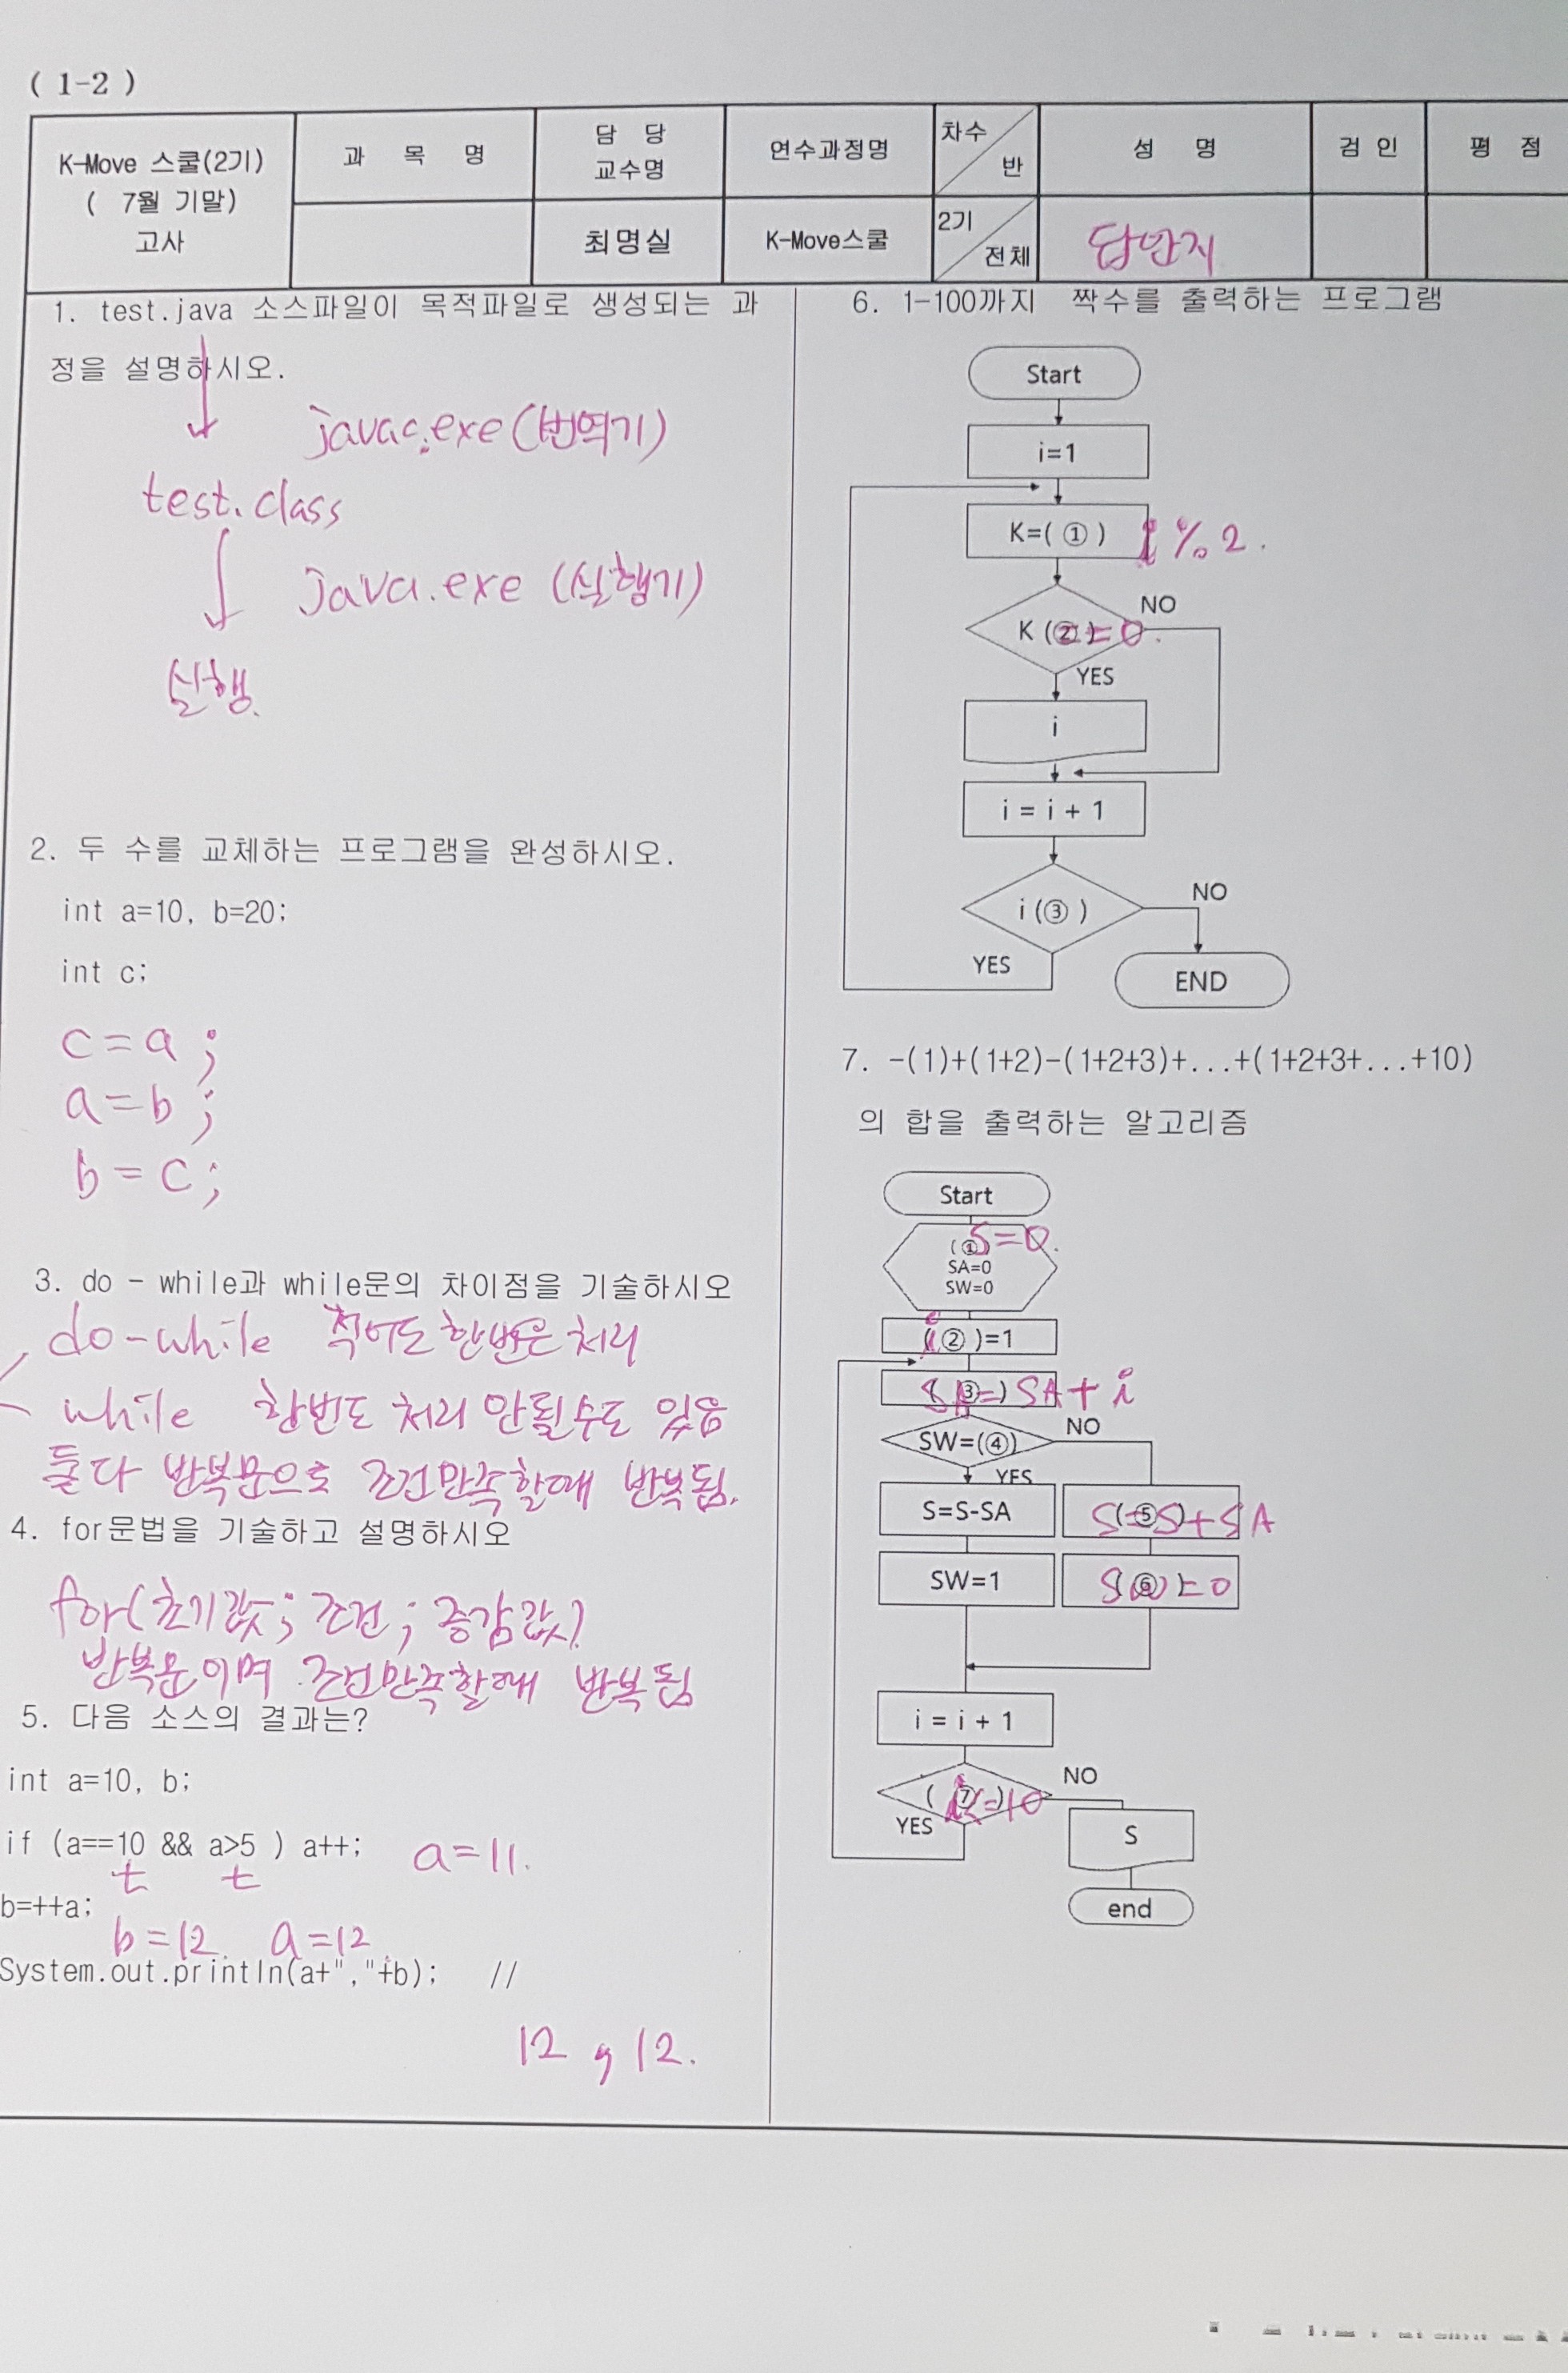 ( 1-2 )
K-Move 스쿨(2기)
( 7월 기말)
고사
과 목 명
담 당
교수명
연수과정명
차수
반
성 명
검 인
평 점
최명실
K-Move스쿨
2기
전체
답안지
1. test.java 소스파일이 목적파일로 생성되는 과
정을 설명하시오.
javac.exe (번역기)
test.class
java.exe (실행기)
실행.
2. 두 수를 교체하는 프로그램을 완성하시오.
int a=10, b=20;
int c;
c=a;
a=b;
b=c;
3. do - while과 while문의 차이점을 기술하시오
do-while 적어도 한번은 처리
while 한번도 처리 안될수도 있음
둘다 반복문으로 조건만족할때 반복됨.
4. for문법을 기술하고 설명하시오
for(초기값; 조건; 증감값)
반복문이며 조건만족할때 반복됨
5. 다음 소스의 결과는?
int a=10, b;
if (a==10 && a>5 ) a++; a=11.
t t
b=++a;
b=12. a=12
System.out.println(a+","+b); //
12 , 12.
6. 1-100까지 짝수를 출력하는 프로그램
Start
i=1
K=( ① ) i % 2.
K (②) = 0.
NO
YES
i
i = i + 1
i (③ )
NO
YES
END
7. -(1)+(1+2)-(1+2+3)+...+(1+2+3+...+10)
의 합을 출력하는 알고리즘
Start
(①) S=0.
SA=0
SW=0
( ② )=1 i
( ③ ) SA=SA+i
SW=(④)
NO
YES
S=S-SA
(⑤) S=S+SA
SW=1
(⑥) SW=0
i = i + 1
( ⑦ ) i<=10
NO
YES
S
end